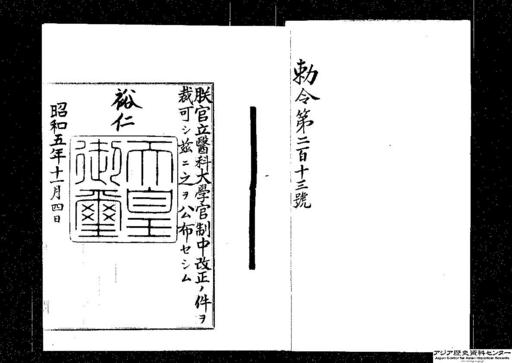 勅令第二百十三號
朕官立醫科大學官制中改正ノ件ヲ
裁可シ茲ニ之ヲ公布セシム
裕仁
天皇
御璽
昭和五年十一月四日
アジア歴史資料センター
Japan Center for Asian Historical Records